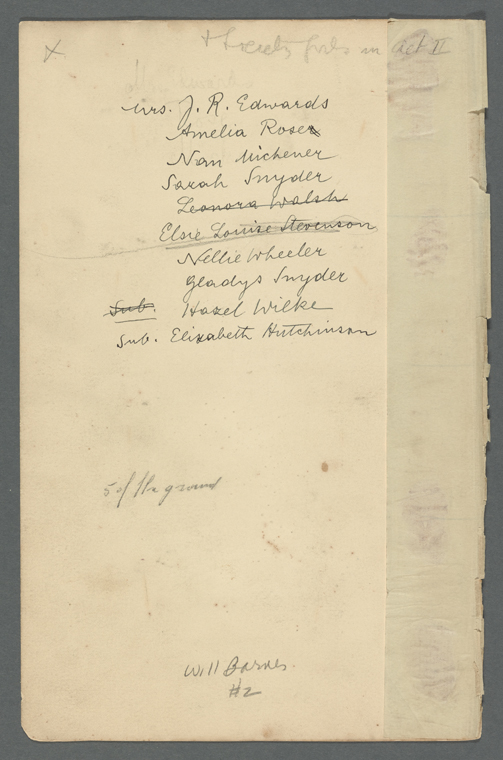 X
girls in act II
Mrs. J. R. Edwards
Amelia Rose
Nan Michener
Sarah Snyder
Leonora Walsh
Elsie Louise Stevenson
Nellie Wheeler
Gladys Snyder
Sub. Hazel Wilke
Sub. Elizabeth Hutchinson
5 of the ground
Will Barnes.
#2